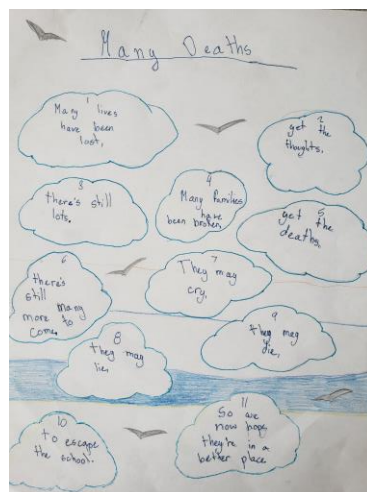 Many Deaths
1
Many lives
have been
lost.
2
get the
thoughts.
3
there's still
lots.
4
Many families
have
been broken
get 5 the
deaths.
6
there's
still
more many
to
come.
7
They may
cry.
8
they may
lie.
9
they may
die.
10
to escape
the school.
11
So we
now hope
they're in a
better place